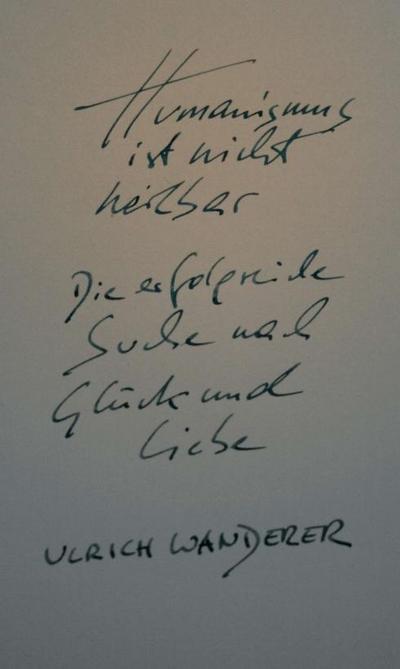 Humanismus
ist nicht
heilbar
Die erfolgreiche
Suche nach
Glück und
Liebe
ULRICH WANDERER